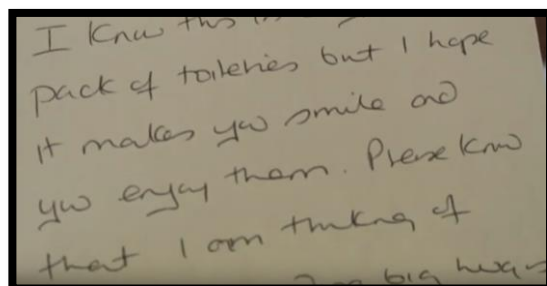 I know this is
pack of toiletries but I hope
it makes you smile and
you enjoy them. Please know
that I am thinking of
big hugs